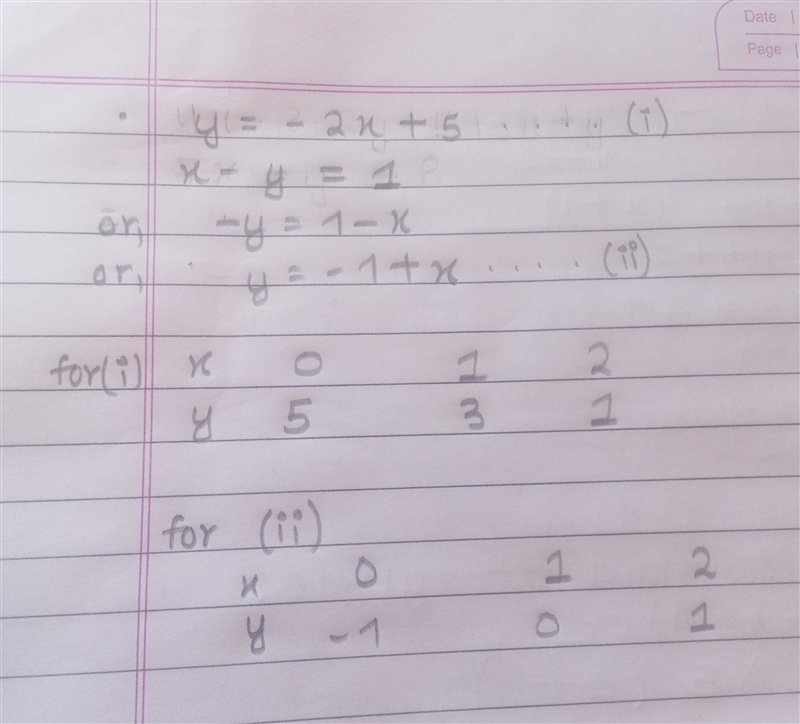 Date
Page
y = - 2x + 5 . . . . . (i)
x - y = 1
or, -y = 1 - x
or, y = - 1 + x . . . . . (ii)
for(i) x 0 1 2
y 5 3 1
for (ii)
x 0 1 2
y -1 0 1